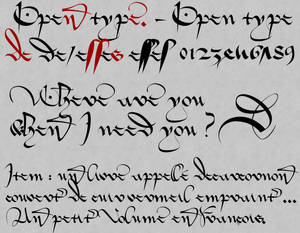 Open type. - Open type
de de/esses esses 0123456789
Where are you
when I need you ? D
Item : ung livre appelle decameron
couvert de cuir vermeil empraint ...
Ung petit Volume en françois